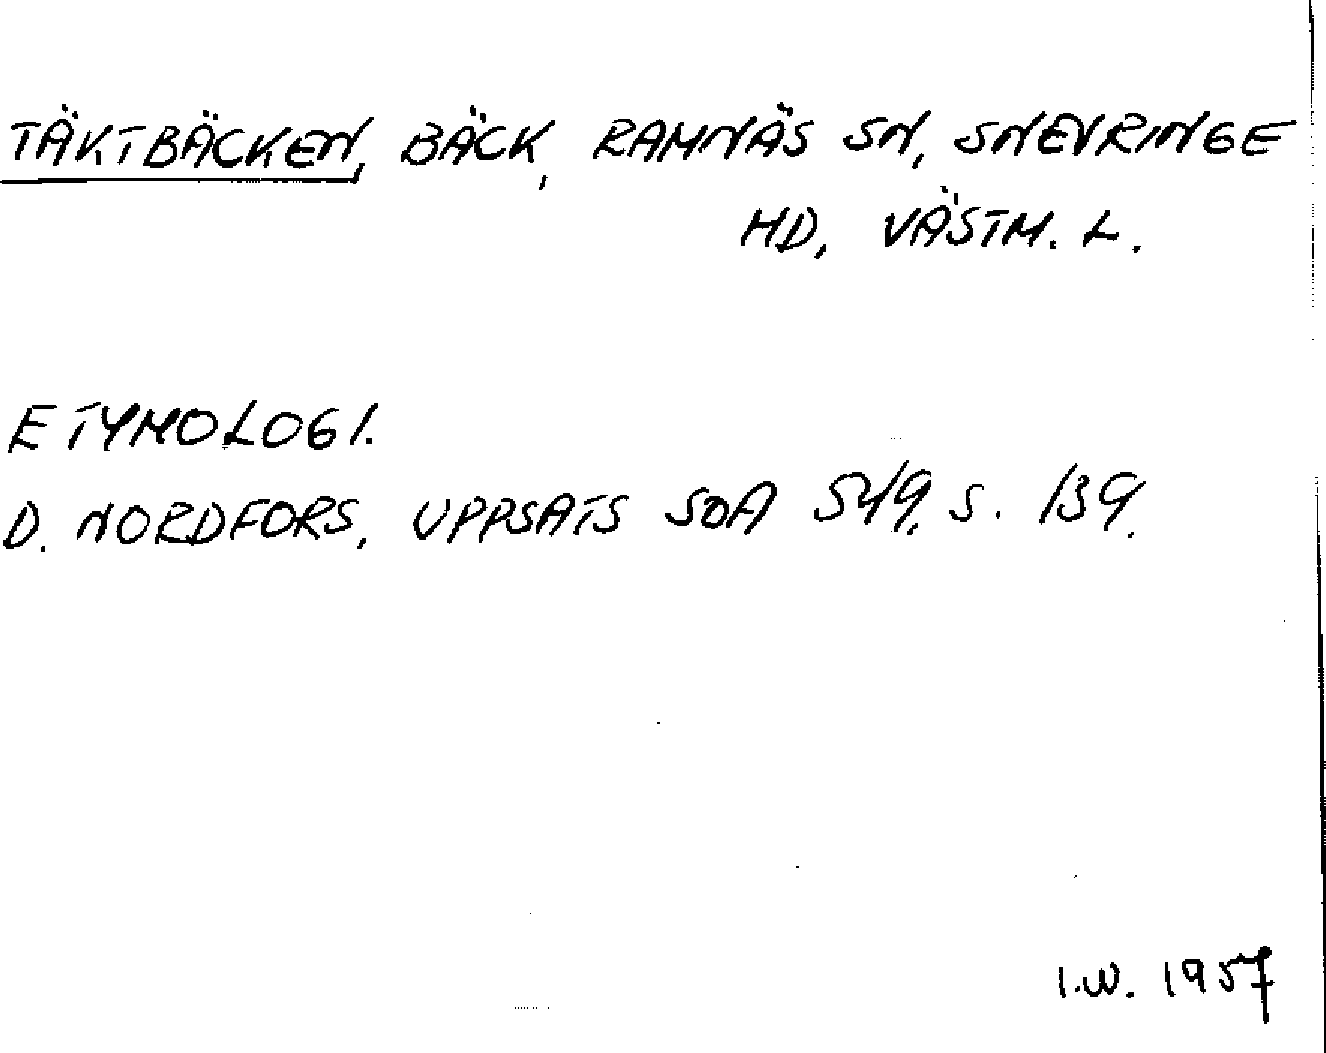 TÄKTBÄCKEN, BÄCK, RAMNÄS SN, SNEVRINGE
HD, VÄSTM. L.
ETYMOLOGI.
D. NORDFORS, UPPSATS SOA 549, S. 139.
I.W. 1957